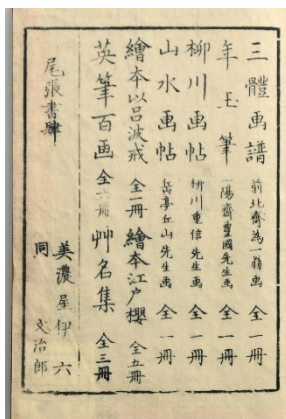 三體画譜 前北齋為一翁画 全一冊
年玉筆 一陽齋豊國先生画 全一冊
柳川画帖 柳川重信先生画 全一冊
山水画帖 岳亭丘山先生画 全一冊
繪本以呂波戒 全一冊 繪本江戸櫻 全五冊
英筆百画 全六冊 艸名集 全三冊
尾張書肆
美濃屋伊六
同 文治郎